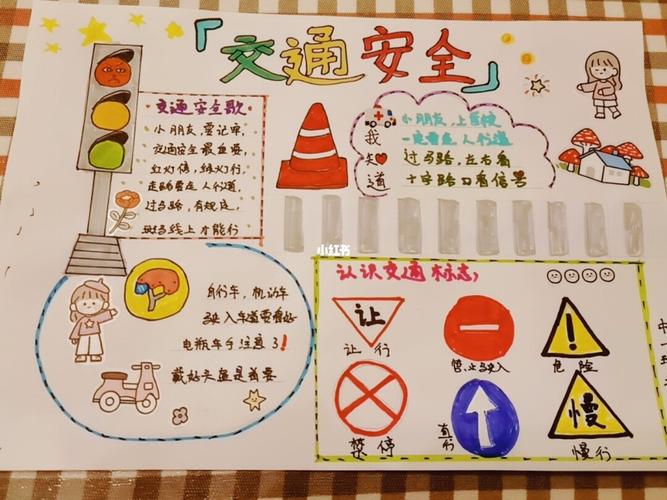 「交通安全」
交通安全歌
小朋友,要记牢,
交通安全最重要,
红灯停,绿灯行,
走路要走人行道,
过马路,有规定,
斑马线上才能行
我知道
小朋友,上学校
一定要走人行道
过马路,左右看
十字路口看信号
小红书
自行车,机动车
驶入车道要看好
电瓶车手注意了!
戴好头盔是首要
认识交通标志;
让
!
让行
禁止驶入
危险
慢
禁停
直行
慢行